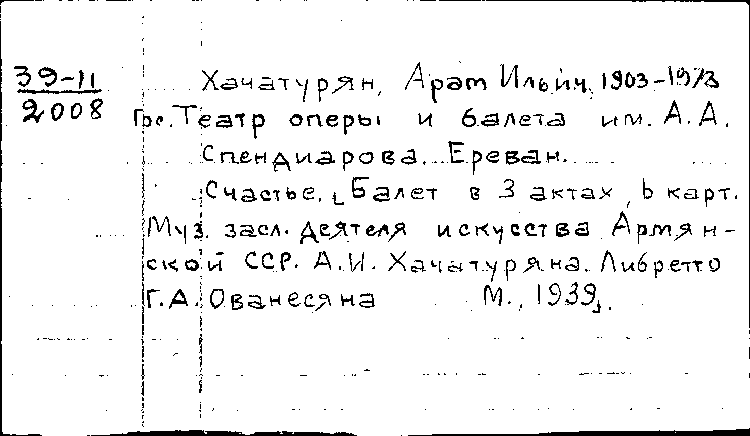 39-11
2008
Хачатурян, Арам Ильич, 1903-1978
Гос. Театр оперы и балета им. А. А.
Спендиарова. Ереван.
Счастье. [Балет в 3 актах, 6 карт.
Муз. засл. деятеля искусства Армян-
ской ССР. А.И. Хачатуряна. Либретто
Г.А. Ованесяна М., 1939].